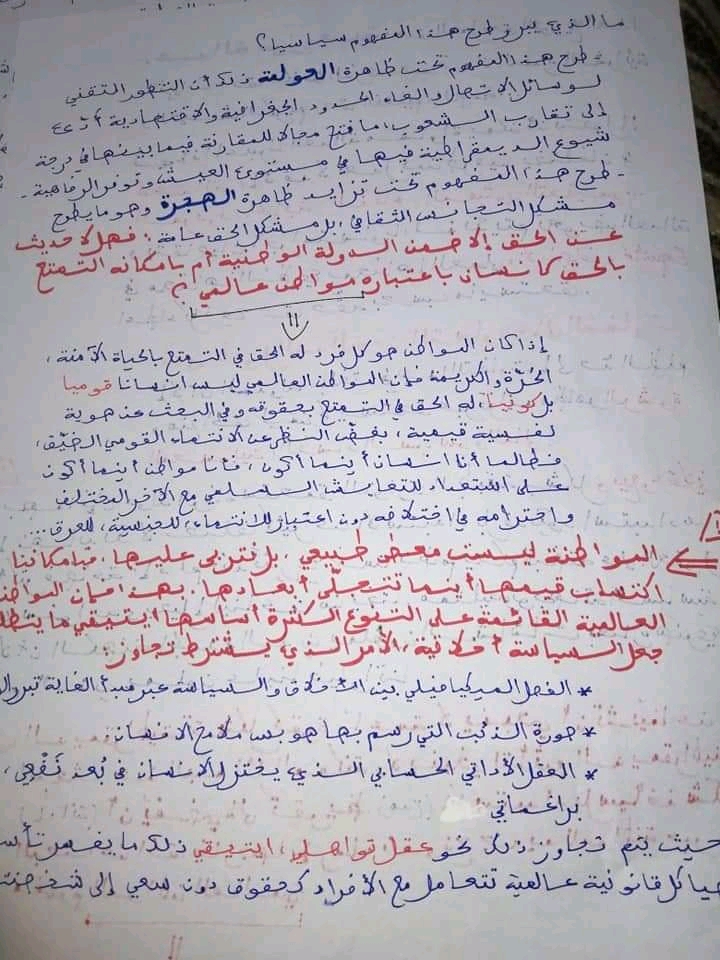 ما الذي يبرر طرح هذا المفهوم سياسيا؟
- طرح هذا المفهوم تحت ظاهرة العولمة ذلك أن التطور التقني
لوسائل الاتصال والغاء الحدود الجغرافية والاقتصادية أدى
إلى تقارب الشعوب، ما فتح مجالا للمقارنة فيما بينها في درجة
شيوع الديمقراطية فيها في مستوى العيش وتوفر الرفاهية.
- طرح هذا المفهوم تحت تزايد ظاهرة الهجرة وهو ما يطرح
مشكل التجانس الثقافي، بل مشكل الحق عامة: فهل لا حديث
عن الحق إلا ضمن الدولة الوطنية أم بإمكانه التمتع
بالحق كإنسان باعتباره مواطن عالمي؟
إذا كان المواطن هو كل فرد له الحق في التمتع بالحياة الآمنة،
الحرّة والكريمة فإن المواطن العالمي ليس انسانا قوميا
بل كونيا، له الحق في التمتع بحقوقه وفي البحث عن هوية
لنفسه قيمية، بغضّ النظر عن الانتماء القومي الضيّق،
فطالما أنا انسان أينما أكون، فأنا مواطن أينما أكون
على استعداد للتعايش السلمي مع الآخر المختلف
واحترامه في اختلافه دون اعتبار للانتماء، للجنسية، للعرق...
المواطنة ليست معطى طبيعي، بل نتربى عليها، فبإمكاننا
اكتساب قيمها أينما تتجلى أبعادها. بهذا فإن المواطنة
العالمية القائمة على التنوع الكثرة أساسها ايتيقي ما يتطلب
جعل السياسة أخلاقية، الأمر الذي يشترط تجاوز:
* الفصل الميكيافيلي بين الأخلاق والسياسة عبر مبدأ الغاية تبرر
* صورة الذئب التي رسم بها هوبس ملامح الانسان.
* العقل الأداتي الحسابي الذي يختزل الانسان في بُعد نَفْعِي،
براغماتي
حيث يتم تجاوز ذلك نحو عقل تواصلي، ايتيقي ذلك ما يفسر
هياكل قانونية عالمية تتعامل مع الأفراد كحقوق دون سعي إلى